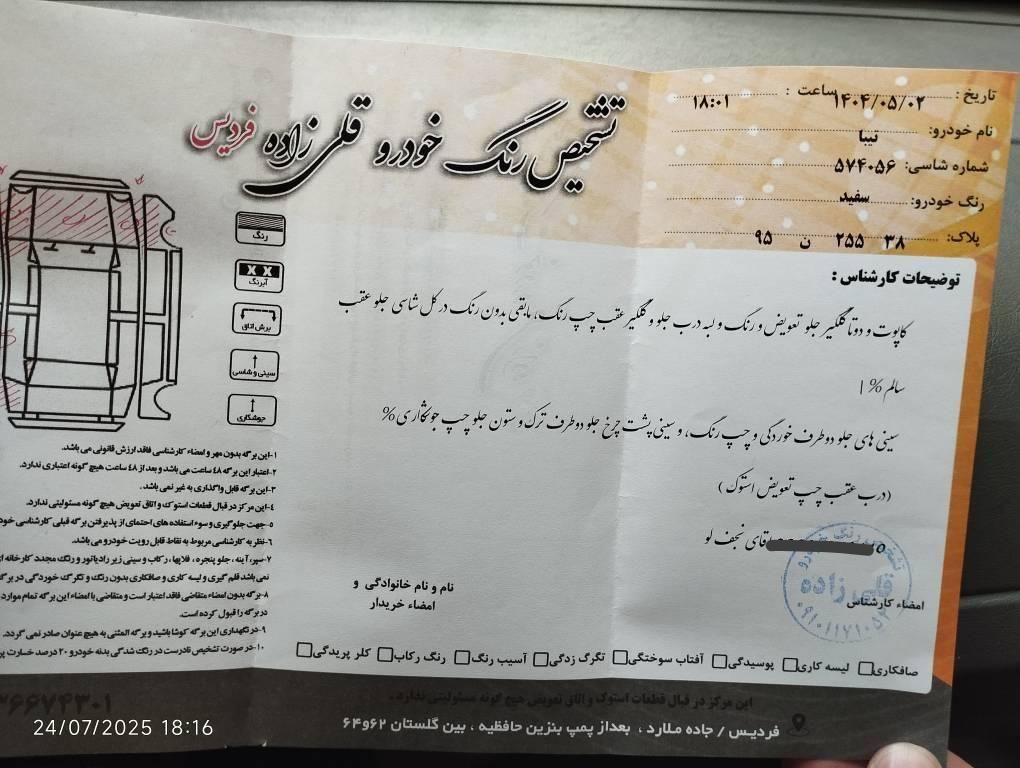 تشخیص رنگ خودرو قلی زاده فردیس
تاریخ: ۱۴۰۴/۰۵/۰۲ ساعت: ۱۸:۰۱
نام خودرو: تیبا
شماره شاسی: ۵۷۴۰۵۶
رنگ خودرو: سفید
پلاک: ۳۸ ۲۵۵ ن ۹۵
رنگ
آبرنگ
برش اتاق
سینی و شاسی
جوشکاری
توضیحات کارشناس:
کاپوت و دوتا گلگیر جلو تعویض و رنگ و لبه درب جلو و گلگیر عقب چپ رنگ، مابقی بدون رنگ در کل شاسی جلو عقب
سالم %۱
سینی های جلو دوطرف خوردگی و چپ رنگ، و سینی پشت چرخ جلو دوطرف ترک و ستون جلو چپ جوشکاری %
(درب عقب چپ تعویض استوک)
اقای نجف لو
تشخیص رنگ خودرو
قلی زاده
امضاء کارشناس
نام و نام خانوادگی و
امضاء خریدار
۱-این برگه بدون مهر و امضاء کارشناسی فاقد ارزش قانونی می باشد.
۲-اعتبار این برگه ۴۸ ساعت می باشد و بعد از ۴۸ ساعت هیچ گونه اعتباری ندارد.
۳-این برگه قابل واگذاری به غیر نمی باشد.
۴-این مرکز در قبال قطعات استوک و اتاق تعویض هیچ گونه مسئولیتی ندارد.
۵-جهت جلوگیری و سوء استفاده های احتمالی از پذیرفتن برگه قبلی کارشناسی
۶-نظر به کارشناسی مربوط به نقاط قابل رویت خودرو می باشد.
۷-سپر، آینه، جلو پنجره، قلابها، رکاب و سینی زیر رادیاتور و رنگ مجدد کارخانه
نمی باشد قلم گیری و لیسه کاری و صافکاری بدون رنگ و تگرگ خوردگی در
۸-برگه بدون امضاء متقاضی فاقد اعتبار است و متقاضی با امضاء این برگه تمام موارد
در برگه را قبول کرده است.
۹-در نگهداری این برگه کوشا باشید و برگه المثنی به هیچ عنوان صادر نمی گردد.
۱۰-در صورت تشخیص نادرست در رنگ شدگی بدنه خودرو ۲۰ درصد خسارت
صافکاری لیسه کاری پوسیدگی آفتاب سوختگی تگرگ زدگی آسیب رنگ رنگ رکاب کلر پریدگی
این مرکز در قبال قطعات استوک و اتاق تعویض هیچ گونه مسئولیتی ندارد.
فردیس / جاده ملارد، بعداز پمپ بنزین حافظیه، بین گلستان ۶۲و۶۴
۳۶۶۷۴۳۰۱
24/07/2025 18:16